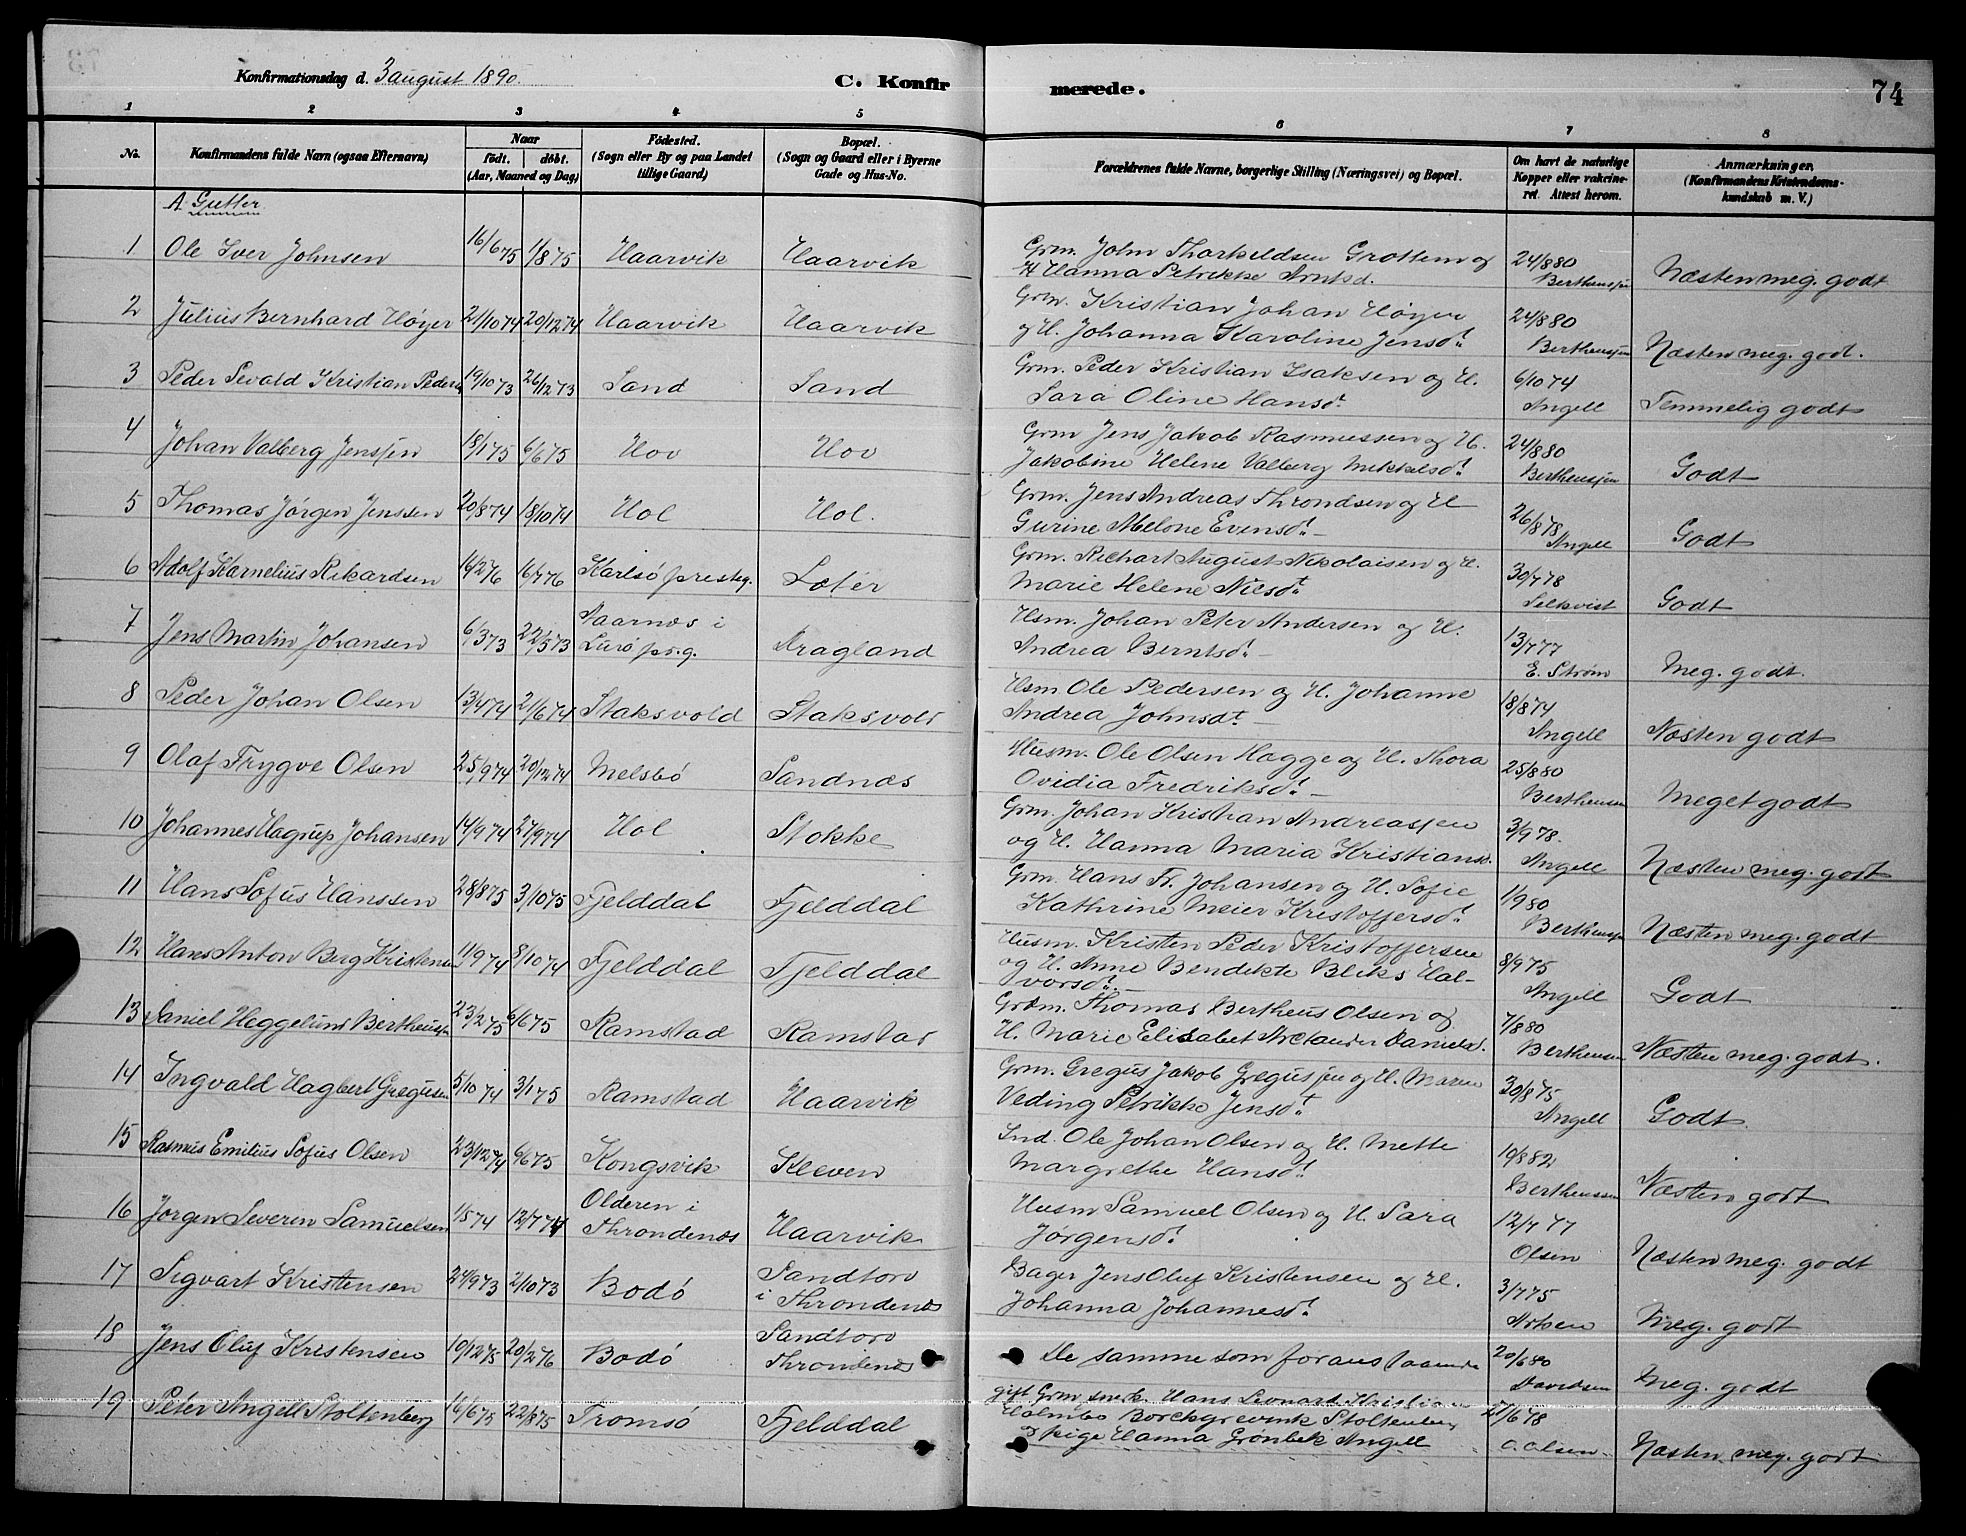 Konfirmationsdag d. 3 august 1890.
C. Konfirmerede.
74
1 2 3 4 5 6 7 8
No.
Konfirmandens fulde Navn (ogsaa Efternavn)
Naar
födt. döbt.
(Aar, Maaned og Dag)
Födested.
(Sogn eller By og paa Landet
tillige Gaard)
Bopæl.
(Sogn og Gaard eller i Byerne
Gade og Hus-No.
Forældrenes fulde Navne, borgerlige Stilling (Næringsvei) og Bopæl.
Om havt de naturlige
Kopper eller vakcine-
ret. Attest herom.
Anmærkninger,
(Konfirmandens Kristendoms-
kundskab m. V.)
A. Gutter.
1 Ole Iver Johnsen 16/6 75 1/8 75 Haarvik Haarvik Grm. John Thorkeldsen Grottem og
H Hanna Petrikke Arntsd. 24/8 80 Bertheussen Næsten meg. godt
2 Julius Bernhard Høyer 21/10 74 20/12 74 Haarvik Haarvik Grm. Kristian Johan Høyer
og H. Johanna Karoline Jensdt. 24/8 80 Bertheussen Næsten meg. godt.
3 Peder Sevald Kristian Peders 19/10 73 26/12 73 Sand Sand Grm. Peder Kristian Isaksen og H.
Sara Oline Hansdt. 6/10 74 Angell Temmelig godt
4 Johan Valberg Jenssen 18/1 75 6/6 75 Hov Hov Grm Jens Jakob Rasmussen og H.
Jakobine Helene Valberg Mikkelsdt. 24/8 80 Bertheussen Godt
5 Thomas Jørgen Jenssen 20/8 74 18/10 74 Hol Hol. Grm. Jens Andreas Throndsen og H
Gurine Melone Evensdt. 26/8 78 Angell Godt
6 Adolf Kornelius Rikardsen 16/7 76 Karlsö presteg. Grm. Richart August Nikolaisen og H.
Marie Helene Nilsdt. 30/7 78 Selkvist Godt
7 Jens Martin Johansen 6/3 73 22/5 73 i
Lurö pr.g. Aragland Hsm. Johan Peter Andersen og H.
Andrea Berntsdt. 13/7 77 E. Strøm Meg. godt.
8 Peder Johan Olsen 13/4 74 21/6 74 Staksvold Staksvold Hsm. Ole Pedersen og H. Johanne
Andrea Johnsdt. 18/8 74 Angell Næsten godt
9 Olaf Trygve Olsen 25/9 74 20/12 74 Melsbö Sandnæs Husm. Ole Olsen Hægge og H. Thora
Ovidia Fredriksdt. 25/8 80 Berthensen Meget godt
10 Johannes Hagrup Johansen 14/9 74 27/9 74 Hol Stokke Grm. Johan Kristian Andreassen
og H. Hanna Maria Kristiansd. 3/9 78. Angell Næsten meg. godt
11 Hans Sofus Hanssen 28/8 75 3/10 75 Fjelddal Fjelddal Grm. Hans Fr. Johansen og H. Sofie
Kathrine Meier Kristoffersdt. 1/9 80 Bertheussen Næsten meg. godt
12 Hans Anton Berg Kristensen 11/9 74 8/10 74 Fjelddal Fjelddal Husm. Kristen Peder Kristoffersen
og H. Anne Bendikte Bliks Hal-
vorsdt. 8/9 75 Angell Godt
13 Daniel Heggelund Bertheussen 23/2 75 6/6 75 Ramstad Ramstad Grdm. Thomas Bertheus Olsen og
H. Marie Elisabet Arctander Danielsd. 7/8 80 Berthensen Næsten meg. godt.
14 Ingvald Hagbert Gregusen 5/10 74 3/1 75 Ramstad Haarvik Grm. Gregus Jakob Gregussen og H. Maren
Veding Petrikke Jensdt. 30/8 75 Angell Godt.
15 Rasmus Emilius Sofus Olsen 23/12 74 6/6 75 Kongsvik Kleven Ind. Ole Johan Olsen og H. Mette
Margrethe Hansdt. 19/8 82 Bertheussen Næsten godt
16 Jørgen Severin Samuelsen 1/5 74 12/7 74 Olderen i
Throndenæs Haarvik Husm Samuel Olsen og H. Sara
Jørgensdt. 12/7 77 Olsen Næsten meg. godt
17 Sigvart Kristensen 24/9 73 2/10 73 Bodö Sandtorv
i Throndenæs Bager Jens Oluf Kristensen og H.
Johanna Johannesdt. 3/7 75 Meg. godt
18 Jens Oluf Kristensen 19/12 75 20/2 76 Bodö Sandtorv
Throndenæs De samme som foranstaaende 20/6 80 Davidsen Meg. godt
19 Peter Angell Stoltenberg 16/6 75 22/8 75 Tromsö Fjelddal gift Grm. snek. Hans Leonard Kristian
Holmbo Borchgrevink Stoltenberg
og pige Hanna Grönbek Angell 21/6 78 O. Olsen. Næsten meg. godt